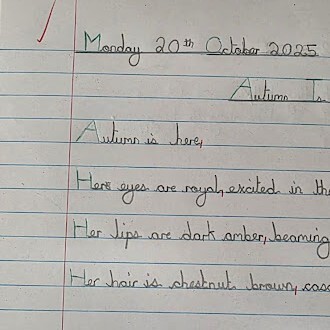 Monday 20th October 2025
Autumn
Autumn is here,
Hers eyes are royal, excited in the
Her lips are dark amber, beaming
Her hair is chestnut brown,